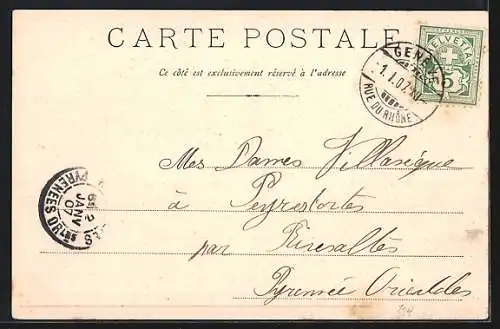 CARTE POSTALE
Ce côté est exclusivement réservé à l'adresse
HELVETIA
5
GENÈVE
-1.I.07.-
RUE DU RHÔNE
Mes Dames Villasèque
à Peyrestortes
par Rivesaltes
Pyrennée Orientales
PYRENEES OR LES
2
JANV
07